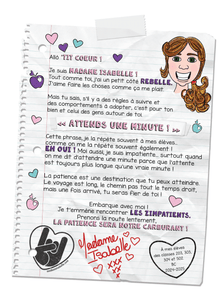 Allo 'TIT COEUR !
Je suis MADAME ISABELLE !
Tout comme toi, j'ai un petit côté REBELLE.
J'aime faire les choses comme ça me plaît.
Mais tu sais, s'il y a des règles à suivre et
des comportements à adopter, c'est pour ton
bien et celui des gens autour de toi.
ATTENDS UNE MINUTE !
Cette phrase, je la répète souvent à mes élèves,
comme on me la répète souvent également !
EH OUI ! Moi aussi, je suis impatiente, surtout quand
on me dit d'attendre une minute parce que l'attente
est toujours plus longue qu'une vraie minute !
La patience est une destination que tu peux atteindre.
Le voyage est long, le chemin pas tout le temps droit,
mais une fois arrivé, tu seras fier de toi !
Embarque avec moi !
Je t'emmène rencontrer LES ZIMPATIENTS.
Prenons la route lentement,
LA PATIENCE SERA NOTRE CARBURANT !
Madame
Isabelle
xxx
xx
À mes élèves
des classes 203, 303,
304 et 502
2024-2025